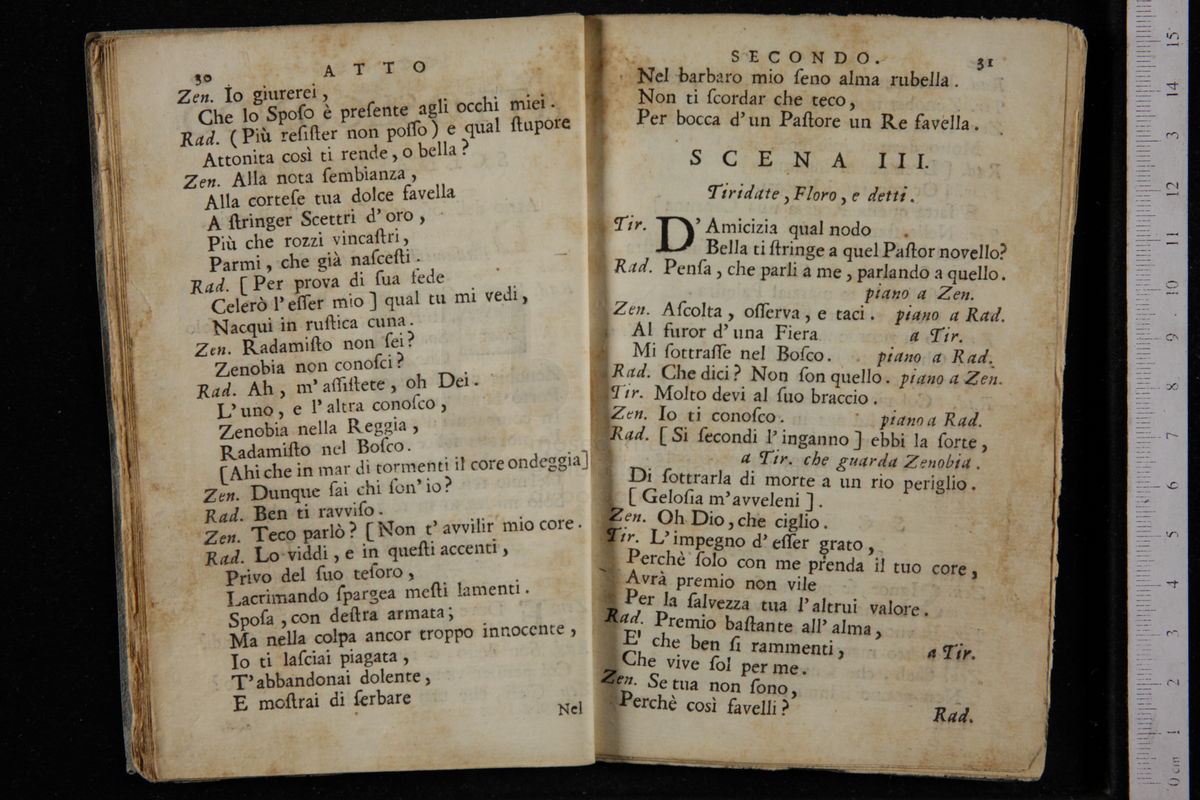 30 ATTO
Zen. Io giurerei,
Che lo Spoſo è preſente agli occhi miei.
Rad. (Più reſiſter non poſſo) e qual ſtupore
Attonita così ti rende, o bella?
Zen. Alla nota ſembianza,
Alla corteſe tua dolce favella
A ſtringer Scettri d'oro,
Più che rozzi vincaſtri,
Parmi, che già naſceſti.
Rad. [Per prova di ſua fede
Celerò l'eſſer mio] qual tu mi vedi,
Nacqui in ruſtica cuna.
Zen. Radamiſto non ſei?
Zenobia non conoſci?
Rad. Ah, m'aſſiſtete, oh Dei.
L'uno, e l'altra conoſco,
Zenobia nella Reggia,
Radamiſto nel Boſco.
[Ahi che in mar di tormenti il core ondeggia]
Zen. Dunque ſai chi ſon'io?
Rad. Ben ti ravviſo.
Zen. Teco parlò? [Non t'avvilir mio core.
Rad. Lo viddi, e in queſti accenti,
Privo del ſuo teſoro,
Lacrimando ſpargea meſti lamenti.
Spoſa, con deſtra armata;
Ma nella colpa ancor troppo innocente,
Io ti laſciai piagata,
T'abbandonai dolente,
E moſtrai di ſerbare
Nel
SECONDO. 31
Nel barbaro mio ſeno alma rubella.
Non ti ſcordar che teco,
Per bocca d'un Paſtore un Re favella.
SCENA III.
Tiridate, Floro, e detti.
Tir. D'Amicizia qual nodo
Bella ti ſtringe a quel Paſtor novello?
Rad. Penſa, che parli a me, parlando a quello.
piano a Zen.
Zen. Aſcolta, oſſerva, e taci. piano a Rad.
Al furor d'una Fiera a Tir.
Mi ſottraſſe nel Boſco. piano a Rad.
Rad. Che dici? Non ſon quello. piano a Zen.
Tir. Molto devi al ſuo braccio.
Zen. Io ti conoſco. piano a Rad.
Rad. [Si ſecondi l'inganno] ebbi la ſorte,
a Tir. che guarda Zenobia.
Di ſottrarla di morte a un rio periglio.
[Geloſia m'avveleni].
Zen. Oh Dio, che ciglio.
Tir. L'impegno d'eſſer grato,
Perchè ſolo con me prenda il tuo core,
Avrà premio non vile
Per la ſalvezza tua l'altrui valore.
Rad. Premio baſtante all'alma,
E' che ben ſi rammenti, a Tir.
Che vive ſol per me.
Zen. Se tua non ſono,
Perchè così favelli?
Rad.